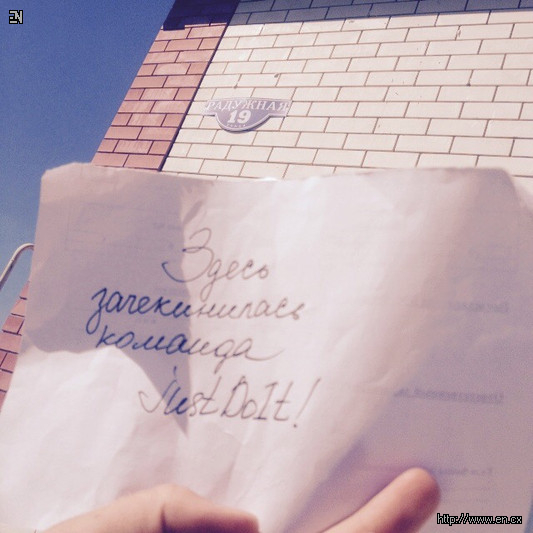 EN
РАДУЖНАЯ
19
Здесь
зачекинилась
команда
JustDoIt!
http://www.en.cx